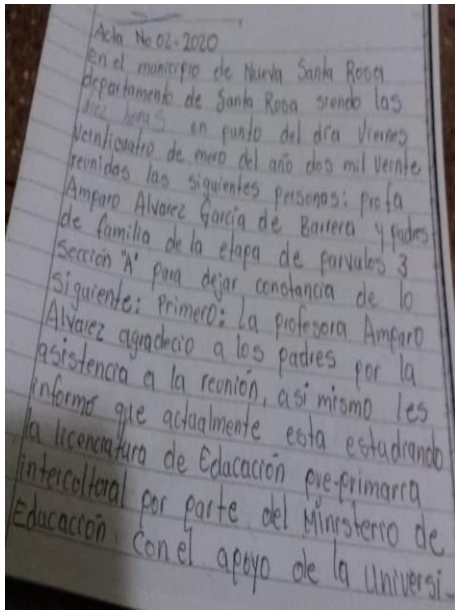 Acta No 02-2020
en el municipio de Nueva Santa Rosa
departamento de Santa Rosa siendo las
diez horas en punto del día Viernes
Veinticuatro de enero del año dos mil veinte
reunidos las siguientes personas: profa
Amparo Alvarez García de Barrera y padres
de familia de la etapa de parvulos 3
sección "A" para dejar constancia de lo
siguiente: Primero: La profesora Amparo
Alvarez agradecio a los padres por la
asistencia a la reunión, asi mismo les
informó que actualmente esta estudiando
la licenciatura de Educación pre-primaria
intercultural por parte del Ministerio de
Educación con el apoyo de la universi-